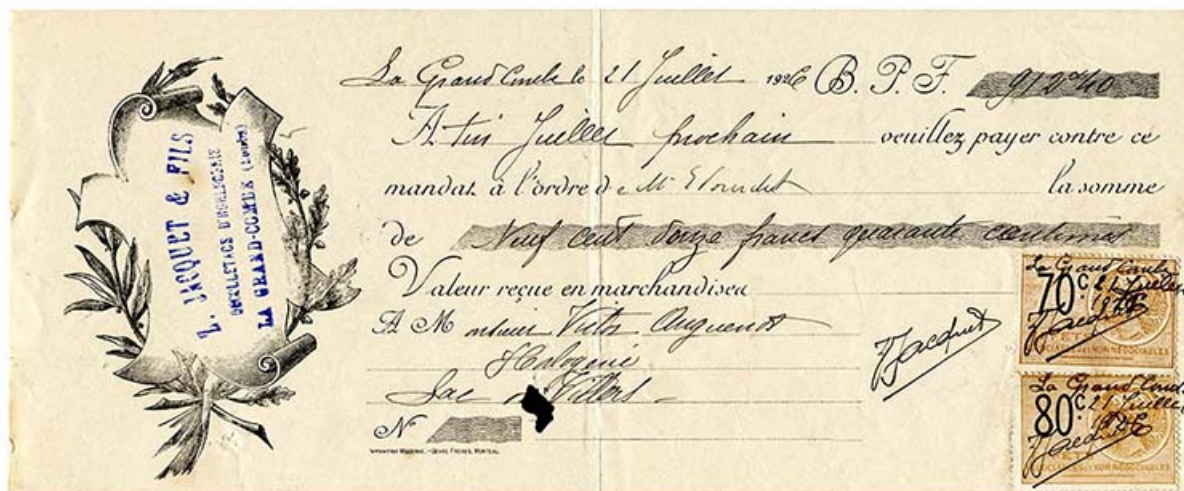 Z. JACQUET & FILS
DÉCOLLETAGE D'HORLOGERIE
LA GRAND-COMBE (Doubs)
La Grand Combe le 21 Juillet 1926 B. P. F. 912 40
A fin Juillet prochain veuillez payer contre ce
mandat à l'ordre de Mr la somme
de Neuf cent douze francs quarante centimes
Valeur reçue en marchandises
A Monsieur Victor Anguenot
Horlogerie
Lac Villers
N
Jacquet
La Grand Combe
70c 21 Juillet
1926
Jacquet
La Grand Combe
80c 21 Juillet
1926
Jacquet